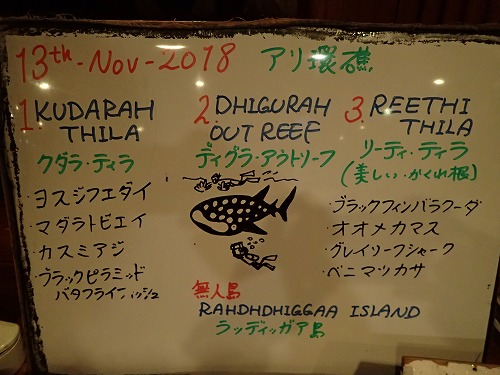 13th-Nov-2018 アリ環礁
1. KUDARAH
THILA
クダラ・ティラ
・ヨスジフエダイ
・マダラトビエイ
・カスミアジ
・ブラックピラミッド
バタフライフィッシュ
2. DHIGURAH
OUT REEF
ディグラ・アウトリーフ
3. REETHI
THILA
リーティ・ティラ
(美しい・かくれ根)
・ブラックフィンバラクーダ
・オオメカマス
・グレイリーフシャーク
・ベニマツカサ
無人島
RAHDHDHIGGAA ISLAND
ラッディッガア島